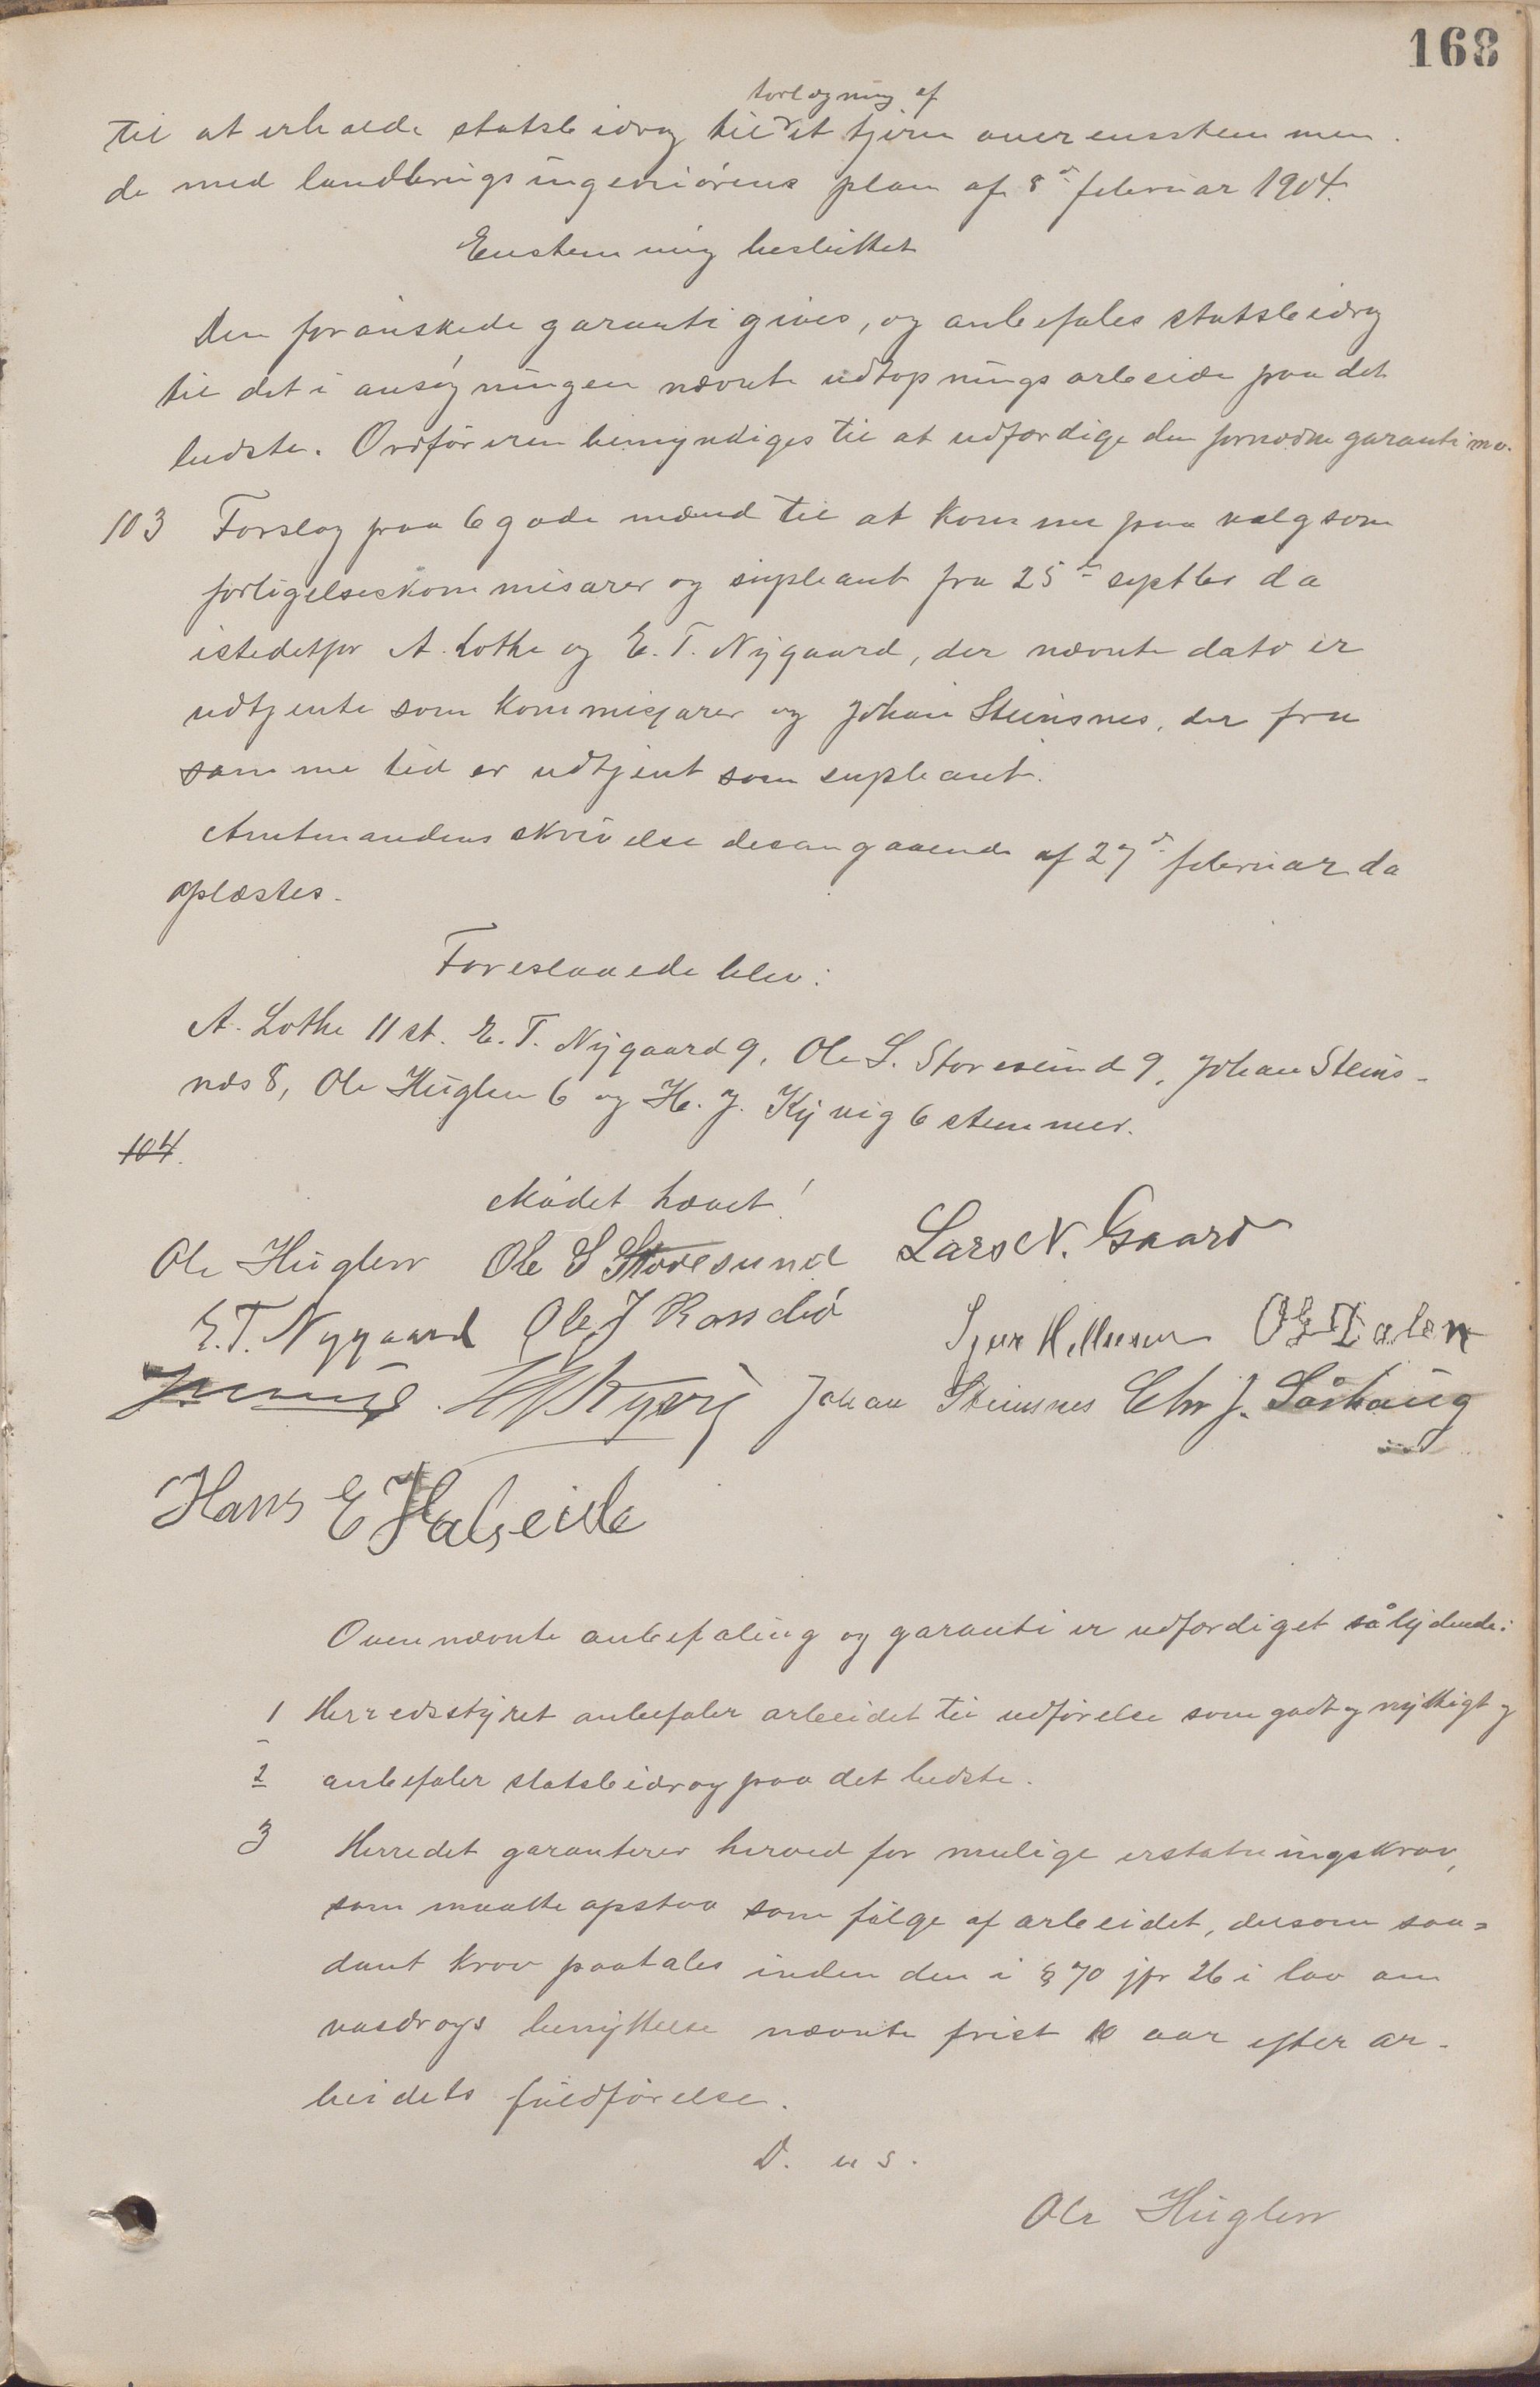 168
tørlægning af
til at erholde statsbidrag til et tjern overensstemmen-
de med landbrugsingeniørens plan af 8de februar 1904.
Enstemmig besluttet
Den forønskede garanti gives, og anbefales statsbidrag
til det i ansøgningen nævnte udtapningsarbeide paa det
bedste. Ordføreren bemyndiges til at udfærdige den fornødne garanti m.v.
103 Forslag paa 6 gode mænd til at komme paa valg som
forligelseskommisarer og supleant fra 25de septbr da
istedetfor A. Lothe og E. T. Nygaard, der nævnte dato er
udtjente som kommisjærer og Johan Steinsnes, der fra
samme tid er udtjent som supleant.
Amtmandens skrivelse desangaaende af 27de februar da
oplæstes.
Foreslaaede blev:
A. Lothe 11 st. E. T. Nygaard 9, Ole S. Storesund 9, Johan Steins-
nes 8, Ole Huglen 6 og H. J. Kyvig 6 stemmer.
104.
Mødet hævet!
Ole Huglen Ole S Storesund Lars N. Gaard
E. T. Nygaard Ole J
Johan Steinsnes Chr J.
Hans E Halseide
Ovennævnte anbefaling og garanti er udfærdiget sålydende:
1 Herredsstyret anbefaler arbeidet til udførelse som godt og nyttigt og
2 anbefaler statsbidrag paa det bedste.
3 Herredet garanterer herved for mulige erstatningskrav,
som maatte opstaa som følge af arbeidet, dersom saa=
dant krav paatales inden den i § 70 jfr 26 i lov om
vasdrags benyttelse nævnte frist 10 aar efter ar-
beidets fuldførelse.
D. u s.
Ole Huglen